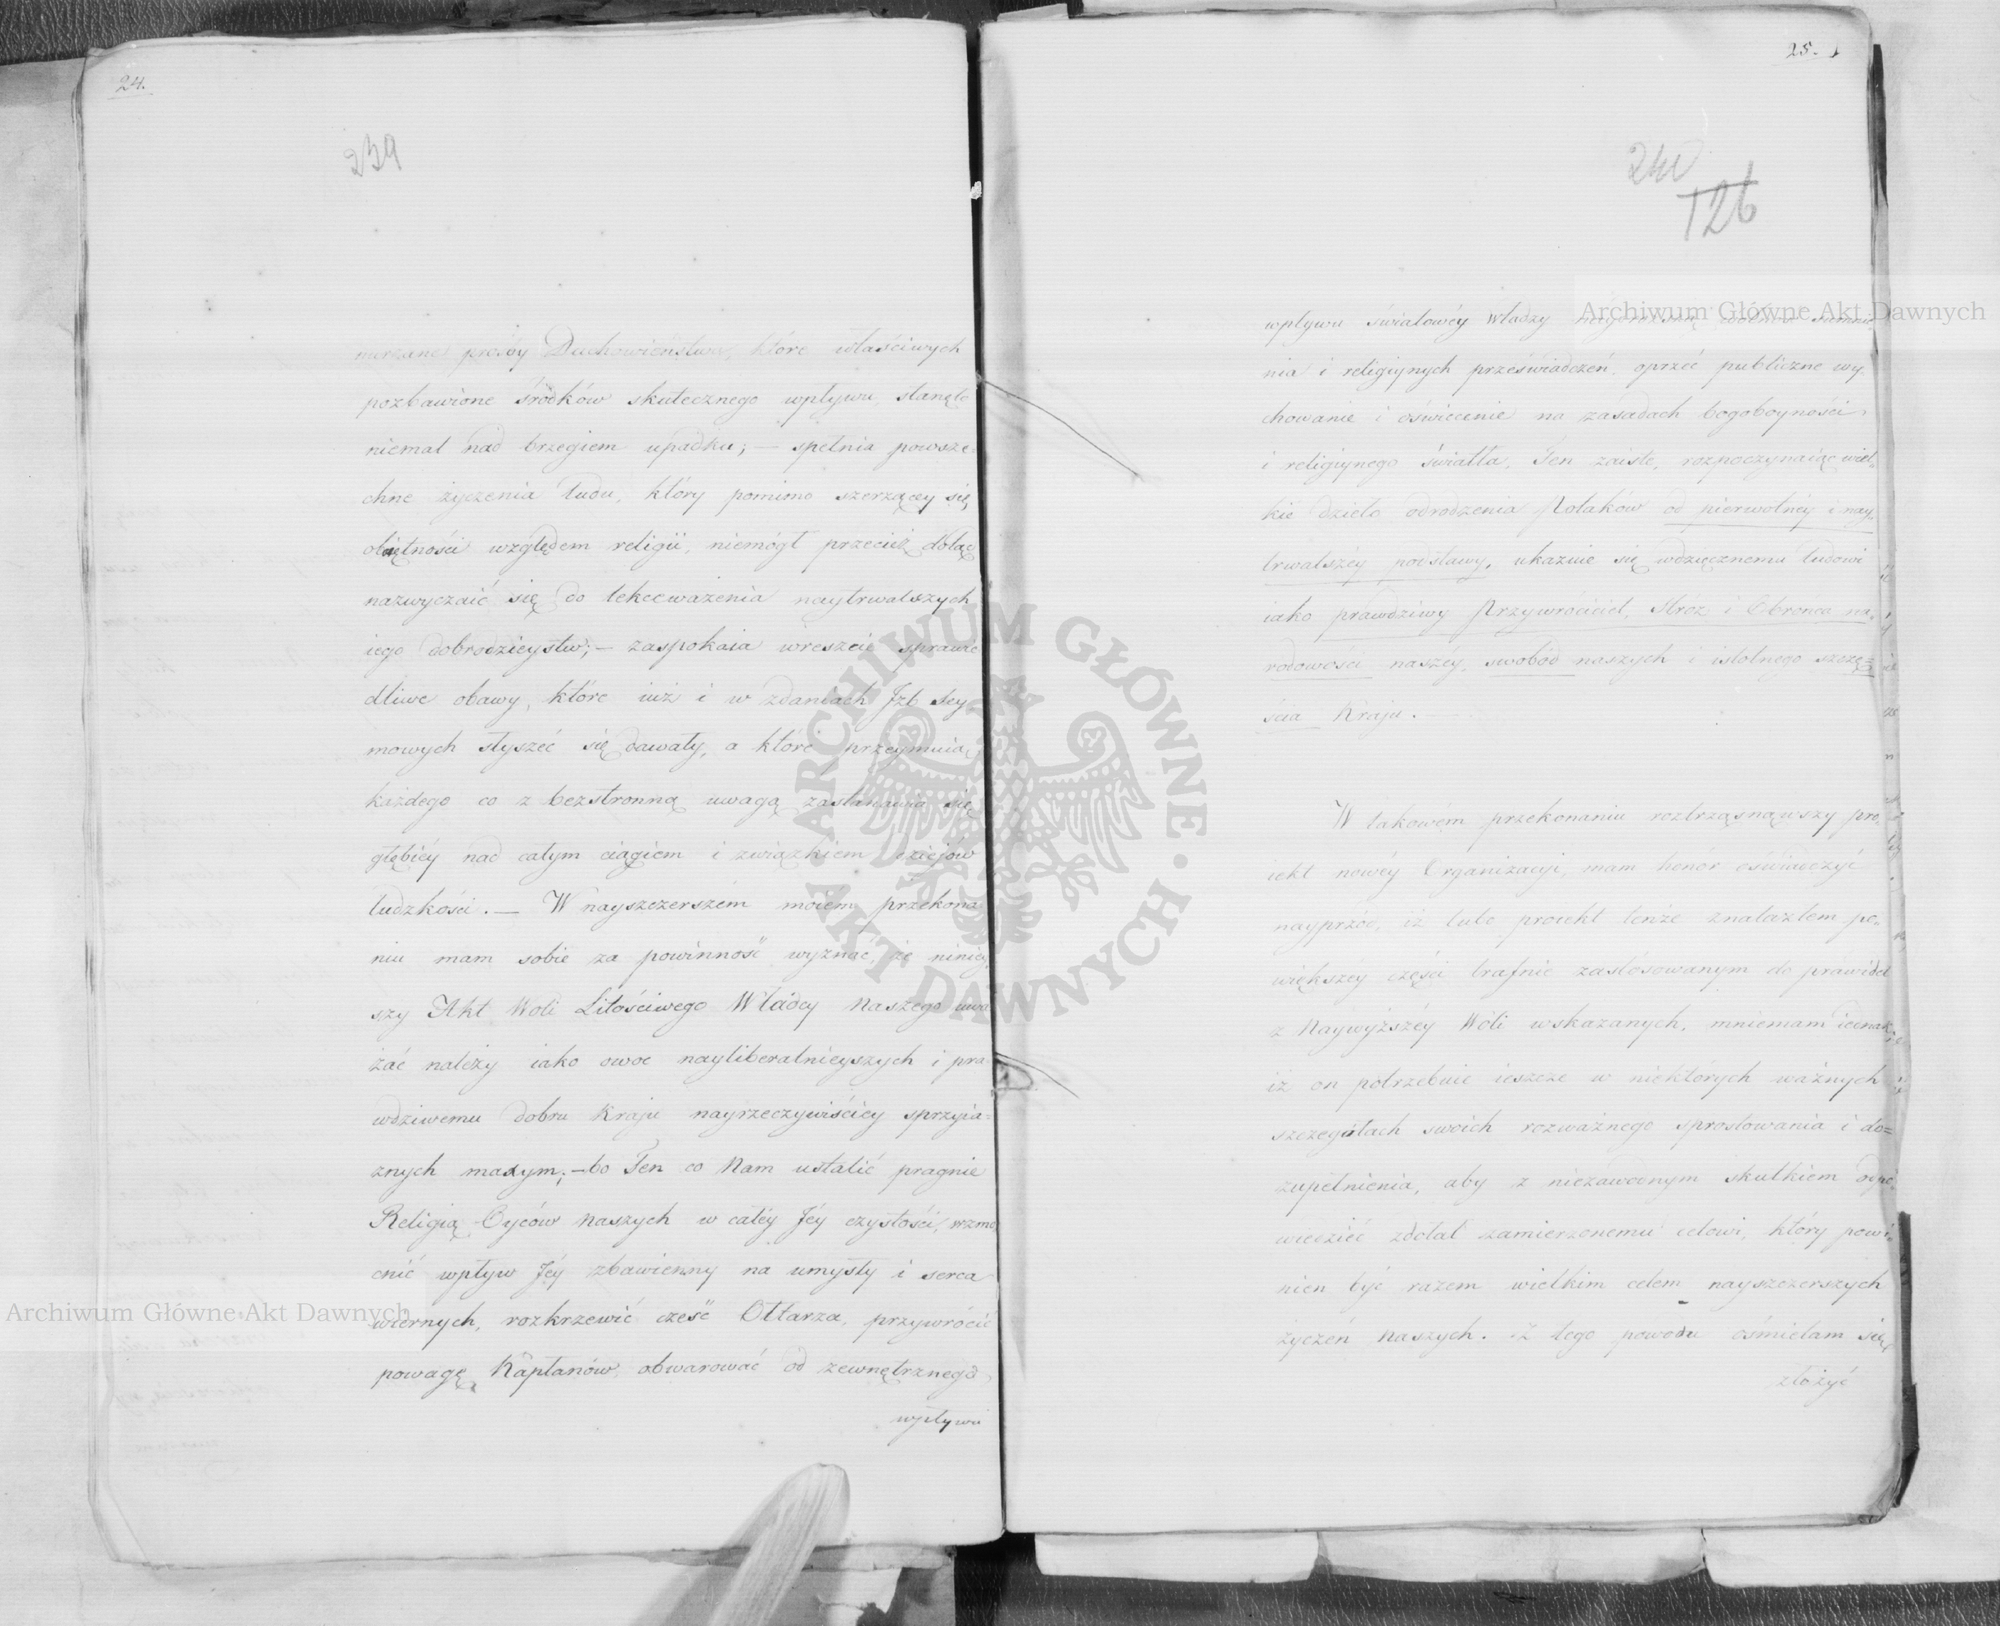 24.
239
prośby Duchowieństwa, które właściwych
pozbawione środków skutecznego wpływu, stanęło
niemal nad brzegiem upadku; — spełnia powsze-
chne życzenia ludu, który pomimo szerzącey się
obojętności względem religii, niemógł przecież dotąd
nazwyczaić się do lekceważenia naytrwalszych
iego dobrodzieystw; — zaspokaia wreszcie sprawie
dliwe obawy, które iuż i w zdaniach Jzb Sey
mowych słyszeć się dawały, a które przeymuią
każdego co z bezstronną uwagą zastanawia się
głębiéy nad całym ciągiem i związkiem dziejów
ludzkości. — W nayszczerszém moiém przekona
niu mam sobie za powinność wyznać, że niniéy
szy Akt Woli Litościwego Władcy Naszego uwa
żać należy iako owoc nayliberalnieyszych i pra
wdziwemu dobru Kraju nayrzeczywiściéy sprzyia=
znych maxym; — bo Ten co Nam ustalić pragnie
Religią Oyców Naszych w całéy Jéy czystości, wzmo
cnić wpływ Jéy zbawienny na umysły i serca
wiernych, rozkrzewić cześć Ołtarza, przywrócić
powagę Kapłanów, obwarować od zewnętrznego
wpływu
25.
240
126
wpływu światowéy władzy wolność sumnie
nia i religiynych przeświadczeń, oprzéć publiczne wy
chowanie i oświecenie na zasadach bogoboyności
i religiynego światła, Ten zaiste, rozpoczynaiąc wiel-
kie dzieło odrodzenia Polaków od pierwotnéy i nay
trwalszéy podstawy, ukazuie się wdzięcznemu ludowi
iako prawdziwy Przywróciciel, Stróż i Obrońca na
rodowości naszéy, swobód naszych i istotnego szczę=
ścia Kraju. —
W takowém przekonaniu roztrząsnąwszy pro
iekt nowéy Organizacyi, mam honór oświadczyć
nayprzód, iż lubo proiekt tenże znalazłem po
większéy części trafnie zastósowanym do prawideł
z Naywyższéy Woli wskazanych, mniemam iednak
iż on potrzebuie ieszcze w niektórych ważnych
szczegółach swoich rozważnego sprostowania i do=
zupełnienia, aby z niezawodnym skutkiem odpo
wiedzieć zdołał zamierzonemu celowi, który powi
nien być razem wielkim celem nayszczerszych
życzeń Naszych. Z tego powodu ośmielam się
złożyć
Archiwum Główne Akt Dawnych
Archiwum Główne Akt Dawnych
ARCHIWUM GŁÓWNE AKT DAWNYCH